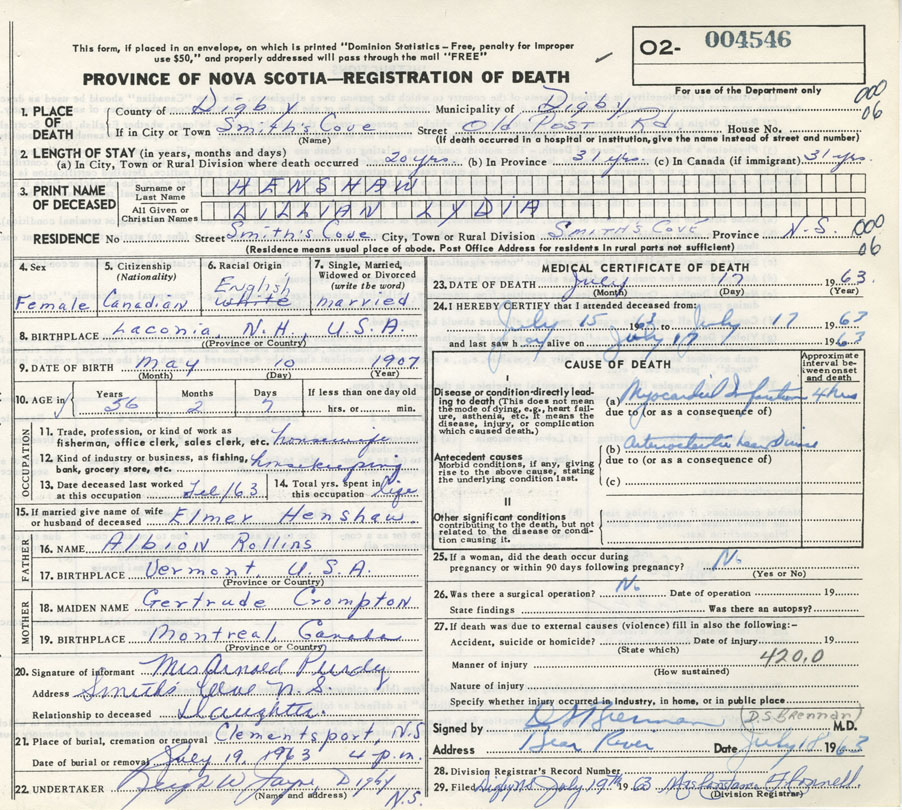 This form, if placed in an envelope, on which is printed "Dominion Statistics – Free, penalty for improper
use $50," and properly addressed will pass through the mail "FREE"
O2- 004546
PROVINCE OF NOVA SCOTIA—REGISTRATION OF DEATH
For use of the Department only
1. PLACE OF DEATH County of Digby Municipality of Digby 000
If in City or Town Smith's Cove Street Old Post Rd House No. 06
(Name) (If death occurred in a hospital or institution, give the name instead of street and number)
2. LENGTH OF STAY (in years, months and days)
(a) In City, Town or Rural Division where death occurred 20 yrs. (b) In Province 31 yrs. (c) In Canada (if immigrant) 31 yrs.
3. PRINT NAME OF DECEASED Surname or Last Name HENSHAW
All Given or Christian Names LILLIAN LYDIA
RESIDENCE No Street Smith's Cove City, Town or Rural Division Smith's Cove Province N.S. 000
(Residence means usual place of abode. Post Office Address for residents in rural parts not sufficient) 06
4. Sex 5. Citizenship (Nationality) 6. Racial Origin 7. Single, Married, Widowed or Divorced (write the word)
Female Canadian English white married
8. BIRTHPLACE Laconia, N.H., U.S.A.
(Province or Country)
9. DATE OF BIRTH May 10 1907
(Month) (Day) (Year)
10. AGE in Years Months Days If less than one day old
56 2 7 hrs. or min.
OCCUPATION
11. Trade, profession, or kind of work as
fisherman, office clerk, sales clerk, etc. housewife
12. Kind of industry or business, as fishing,
bank, grocery store, etc. housekeeping
13. Date deceased last worked at this occupation Feb/63 14. Total yrs. spent in this occupation life
15. If married give name of wife
or husband of deceased Elmer Henshaw
FATHER
16. NAME Albion Rollins
17. BIRTHPLACE Vermont, U.S.A.
(Province or Country)
MOTHER
18. MAIDEN NAME Gertrude Crompton
19. BIRTHPLACE Montreal, Canada
(Province or Country)
20. Signature of informant Mrs Arnold Purdy
Address Smiths Cove N.S.
Relationship to deceased Daughter.
21. Place of burial, cremation or removal Clementsport, N.S
Date of burial or removal July 19, 1963 4 p.m.
22. UNDERTAKER
(Name and address) N.S.
MEDICAL CERTIFICATE OF DEATH
23. DATE OF DEATH July 17 1963.
(Month) (Day) (Year)
24. I HEREBY CERTIFY that I attended deceased from:
July 15 1963 to July 17 1963
and last saw her alive on July 17 1963
CAUSE OF DEATH
Approximate interval between onset and death
I
Disease or condition directly leading
to death (This does not mean
the mode of dying, e.g., heart failure,
asthenia, etc. It means the
disease, injury, or complication
which caused death.)
(a) Myocardial Infarction 4 hrs
due to (or as a consequence of)
Antecedent causes
Morbid conditions, if any, giving
rise to the above cause, stating
the underlying condition last.
(b)
due to (or as a consequence of)
(c)
II
Other significant conditions
contributing to the death, but not
related to the disease or condition
causing it.
25. If a woman, did the death occur during
pregnancy or within 90 days following pregnancy? No.
(Yes or No)
26. Was there a surgical operation? No Date of operation 19
State findings Was there an autopsy?
27. If death was due to external causes (violence) fill in also the following:–
Accident, suicide or homicide? Date of injury 19
(State which)
Manner of injury 420.0
(How sustained)
Nature of injury
Specify whether injury occurred in Industry, in home, or in public place
Signed by D S Brennan (D.S. Brennan) M.D.
Address Bear River Date July 18 1963
28. Division Registrar's Record Number
29. Filed July 19th 1963
(Division Registrar)